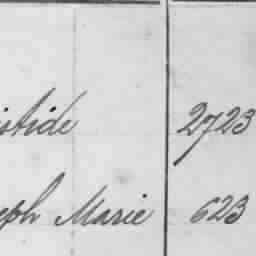 istide 2723
eph Marie 623